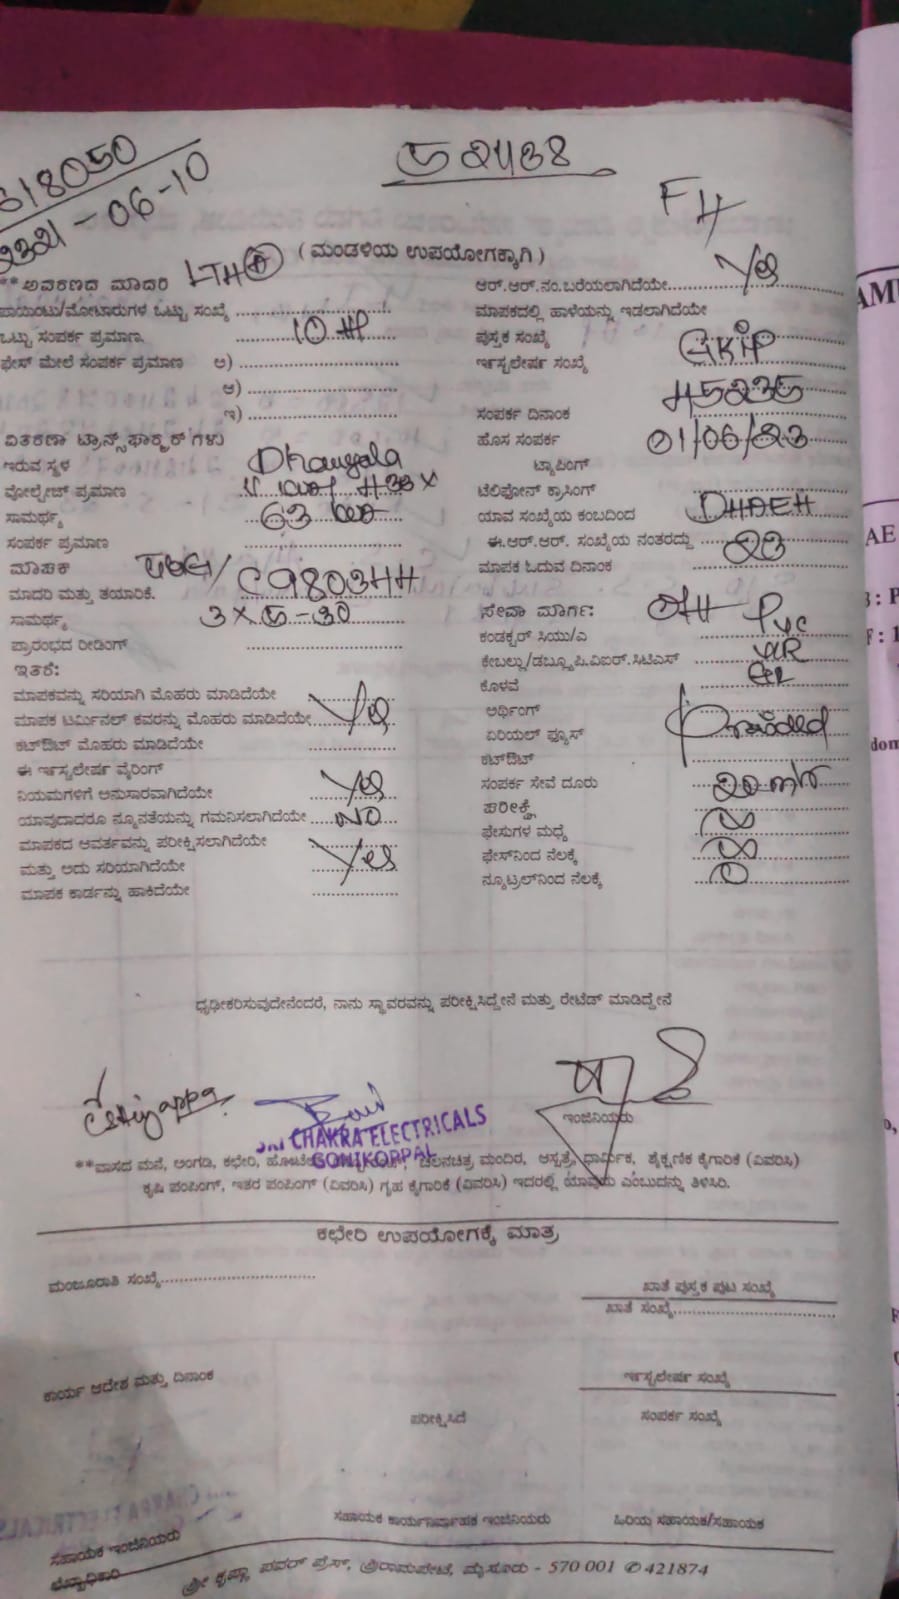 ೮24138
318050
2321-06-10
FH
( ಮಂಡಳಿಯ ಉಪಯೋಗಕ್ಕಾಗಿ )
**ಅವರಣದ ಮಾದರಿ
ಆರ್.ಆರ್.ನಂ.ಬರೆಯಲಾಗಿದೆಯೇ Yes
ಪಾಯಿಂಟು/ಮೋಟಾರುಗಳ ಒಟ್ಟು ಸಂಖ್ಯೆ
ಮಾಪಕದಲ್ಲಿ ಹಾಳೆಯನ್ನು ಇಡಲಾಗಿದೆಯೇ
ಒಟ್ಟು ಸಂಪರ್ಕ ಪ್ರಮಾಣ. 10 HP
ಪುಸ್ತಕ ಸಂಖ್ಯೆ
ಫೇಸ್ ಮೇಲೆ ಸಂಪರ್ಕ ಪ್ರಮಾಣ ಅ)
ಇನ್ಸ್ಟಲೇಷನ್ ಸಂಖ್ಯೆ GKIP
ಆ)
45235
ಇ)
ಸಂಪರ್ಕ ದಿನಾಂಕ
ವಿತರಣಾ ಟ್ರಾನ್ಸ್‌ಫಾರ್‍ಮರ್‌ಗಳು
ಹೊಸ ಸಂಪರ್ಕ 01/06/23
ಇರುವ ಸ್ಥಳ
ಟ್ಯಾಪಿಂಗ್
ವೋಲ್ಟೇಜ್ ಪ್ರಮಾಣ
ಟೆಲಿಫೋನ್ ಕ್ರಾಸಿಂಗ್
ಸಾಮರ್ಥ್ಯ 63
ಯಾವ ಸಂಖ್ಯೆಯ ಕಂಬದಿಂದ
ಸಂಪರ್ಕ ಪ್ರಮಾಣ
ಈ.ಆರ್.ಆರ್. ಸಂಖ್ಯೆಯ ನಂತರದ್ದು
ಮಾಪಕ
ಮಾಪಕ ಓದುವ ದಿನಾಂಕ
ಮಾದರಿ ಮತ್ತು ತಯಾರಿಕೆ. C980344
ಸೇವಾ ಮಾರ್ಗ: OH Pvc
ಸಾಮರ್ಥ್ಯ 3×5-30
ಕಂಡಕ್ಟರ್ ಸಿಯು/ಎ
ಪ್ರಾರಂಭದ ರೀಡಿಂಗ್
ಕೇಬಲ್ಲು/ಡಬ್ಲ್ಯೂ.ಪಿ.ವಿಐಆರ್.ಸಿಟಿಎಸ್
ಇತರೆ:
ಕೊಳವೆ
ಮಾಪಕವನ್ನು ಸರಿಯಾಗಿ ಮೊಹರು ಮಾಡಿದೆಯೇ
ಅರ್ಥಿಂಗ್
ಮಾಪಕ ಟರ್ಮಿನಲ್ ಕವರನ್ನು ಮೊಹರು ಮಾಡಿದೆಯೇ Yes
ಏರಿಯಲ್ ಫ್ಯೂಸ್ Provided
ಕಟ್‌ಔಟ್ ಮೊಹರು ಮಾಡಿದೆಯೇ
ಕಟ್‌ಔಟ್
ಈ ಇನ್ಸ್ಟಲೇಷನ್ ವೈರಿಂಗ್
ನಿಯಮಗಳಿಗೆ ಅನುಸಾರವಾಗಿದೆಯೇ Yes
ಸಂಪರ್ಕ ಸೇವೆ ದೂರು
ಯಾವುದಾದರೂ ನ್ಯೂನತೆಯನ್ನು ಗಮನಿಸಲಾಗಿದೆಯೇ NO
ಪರೀಕ್ಷೆ
ಮಾಪಕದ ಆವರ್ತವನ್ನು ಪರೀಕ್ಷಿಸಲಾಗಿದೆಯೇ
ಫೇಸುಗಳ ಮಧ್ಯೆ
ಮತ್ತು ಅದು ಸರಿಯಾಗಿದೆಯೇ Yes
ಫೇಸ್‌ನಿಂದ ನೆಲಕ್ಕೆ
ಮಾಪಕ ಕಾರ್ಡನ್ನು ಹಾಕಿದೆಯೇ
ನ್ಯೂಟ್ರಲ್‌ನಿಂದ ನೆಲಕ್ಕೆ
ಧೃಢೀಕರಿಸುವುದೇನೆಂದರೆ, ನಾನು ಸ್ಥಾವರವನ್ನು ಪರೀಕ್ಷಿಸಿದ್ದೇನೆ ಮತ್ತು ರೇಟೆಡ್ ಮಾಡಿದ್ದೇನೆ
ಇಂಜಿನಿಯರು
SRI CHAKRA ELECTRICALS
GONIKOPPAL
**ವಾಸದ ಮನೆ, ಅಂಗಡಿ, ಕಛೇರಿ, ಚಲನಚಿತ್ರ ಮಂದಿರ, ಆಸ್ಪತ್ರೆ, ಧಾರ್ಮಿಕ, ಶೈಕ್ಷಣಿಕ ಕೈಗಾರಿಕೆ (ವಿವರಿಸಿ)
ಕೃಷಿ ಪಂಪಿಂಗ್, ಇತರ ಪಂಪಿಂಗ್ (ವಿವರಿಸಿ) ಗೃಹ ಕೈಗಾರಿಕೆ (ವಿವರಿಸಿ) ಇದರಲ್ಲಿ ಯಾವುದು ಎಂಬುದನ್ನು ತಿಳಿಸಿರಿ.
ಕಛೇರಿ ಉಪಯೋಗಕ್ಕೆ ಮಾತ್ರ
ಮಂಜೂರಾತಿ ಸಂಖ್ಯೆ
ಖಾತೆ ಪುಸ್ತಕ ಪುಟ ಸಂಖ್ಯೆ
ಖಾತೆ ಸಂಖ್ಯೆ
ಕಾರ್ಯ ಆದೇಶ ಮತ್ತು ದಿನಾಂಕ
ಇನ್ಸ್ಟಲೇಷನ್ ಸಂಖ್ಯೆ
ಪರೀಕ್ಷಿಸಿದೆ
ಸಂಪರ್ಕ ಸಂಖ್ಯೆ
ಸಹಾಯಕ ಇಂಜಿನಿಯರು
ಸಹಾಯಕ ಕಾರ್ಯನಿರ್ವಾಹಕ ಇಂಜಿನಿಯರು
ಹಿರಿಯ ಸಹಾಯಕ/ಸಹಾಯಕ
ಶ್ರೀ ಕೃಷ್ಣಾ ಪವರ್ ಪ್ರೆಸ್, ಶ್ರೀರಾಮಪೇಟೆ, ಮೈಸೂರು - 570 001 ✆ 421874